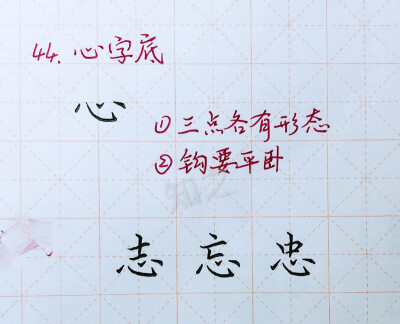 44. 心字底
心
①三点各有形态
②钩要平卧
知之
志 忘 忠